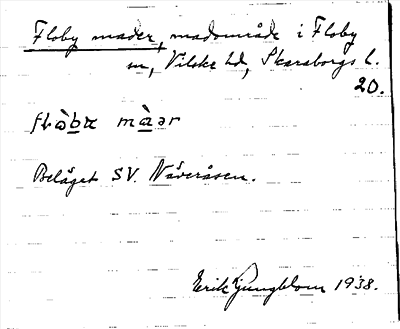 Floby mader, madområde i Floby
sn, Vilske hd, Skaraborgs l.
20.
màər
Beläget SV. Nåveråsen.
Erik Ljungblom 1938.